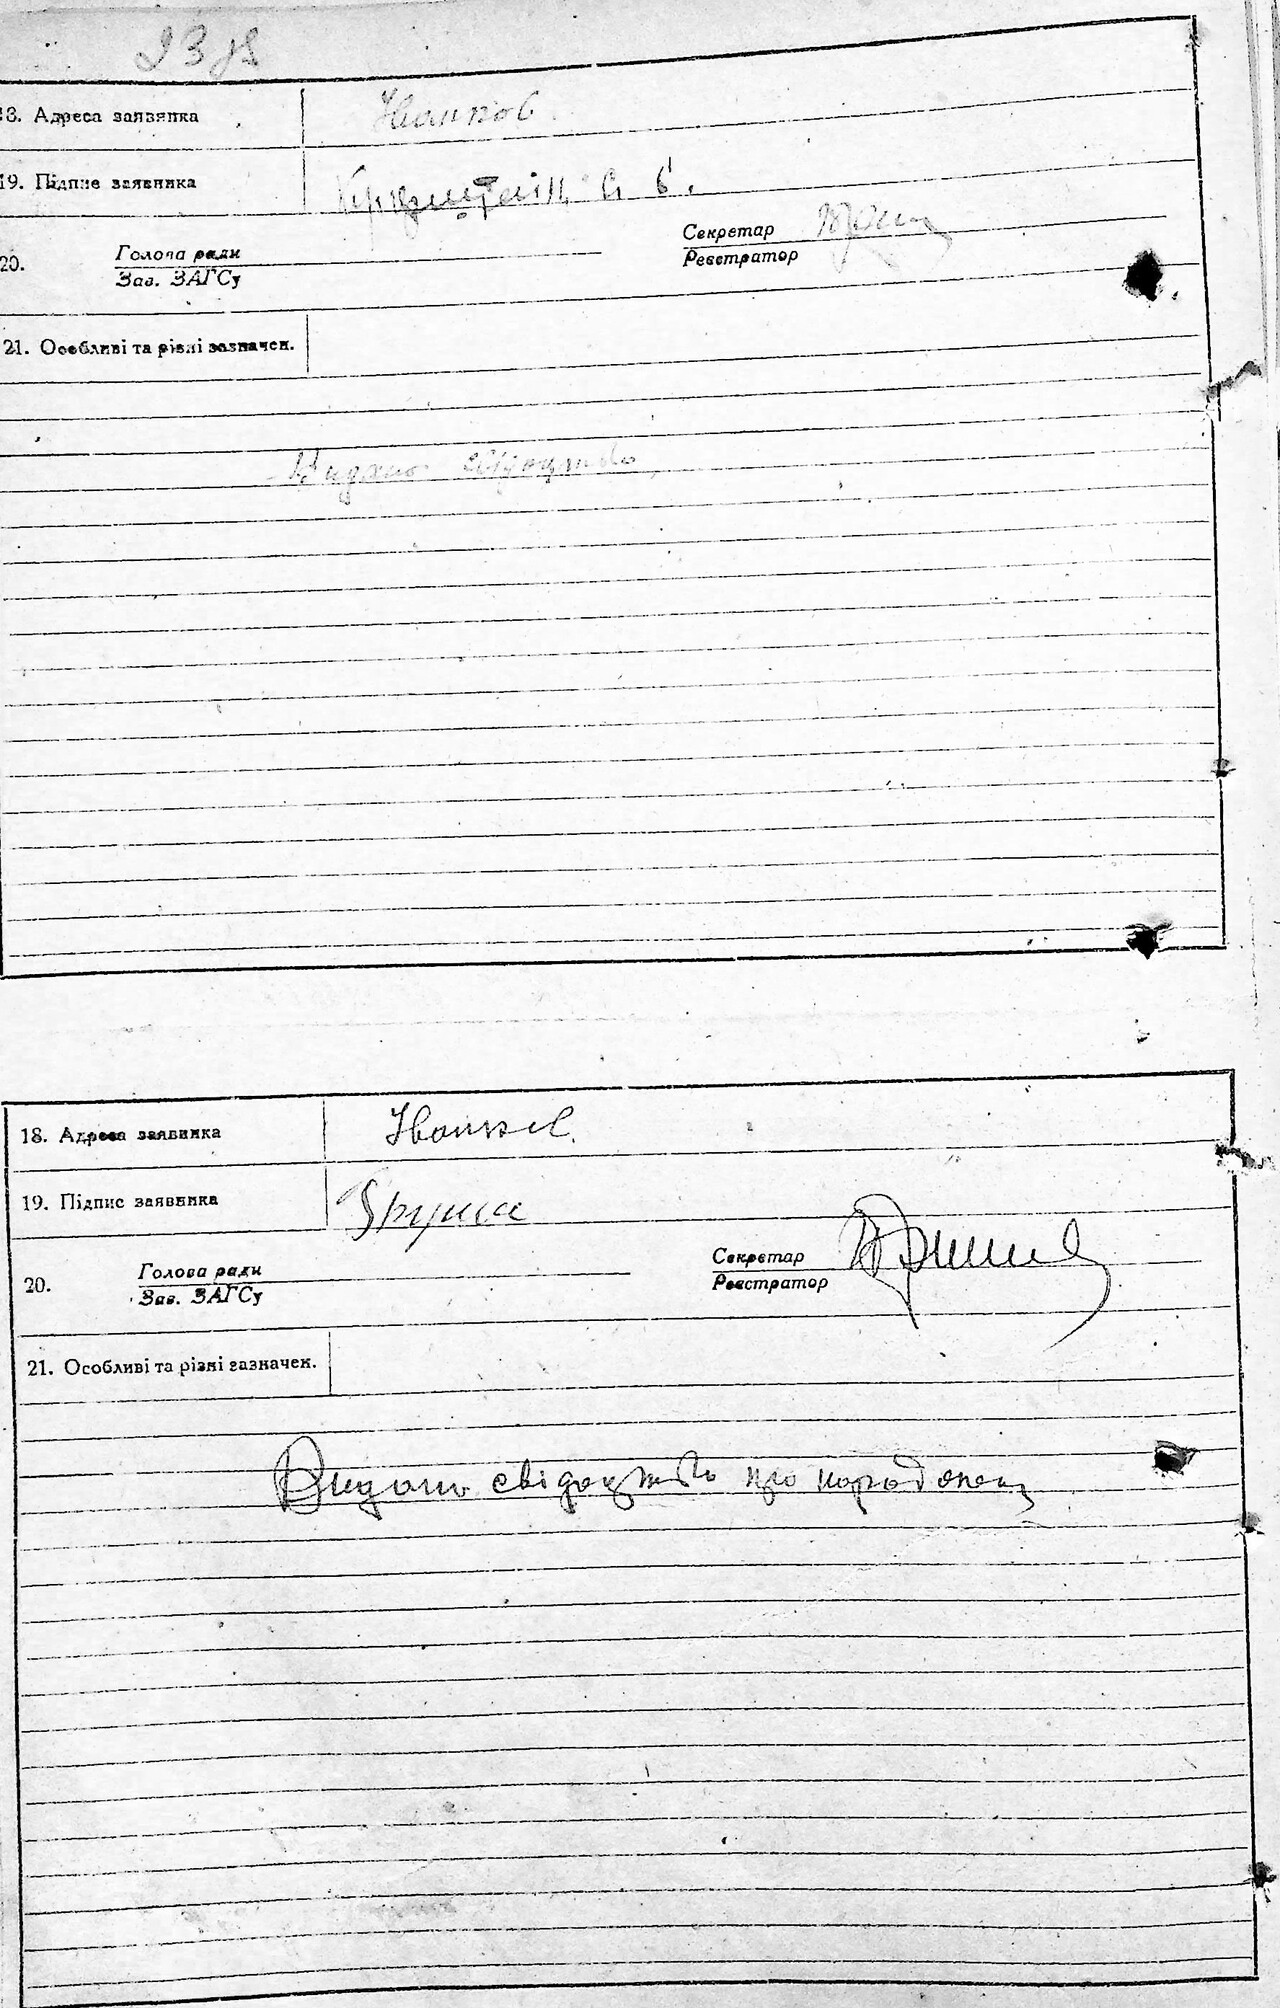 23
18. Адреса заявника Іванков
19. Підпис заявника
20. Голова ради Секретар
Зав. ЗАГСу Реєстратор
21. Особливі та різні зазначен.
Видано свідоцтво
18. Адреса заявника Іванків
19. Підпис заявника
20. Голова ради Секретар
Зав. ЗАГСу Реєстратор
21. Особливі та різні зазначен.
Видано свідоцтво про народження